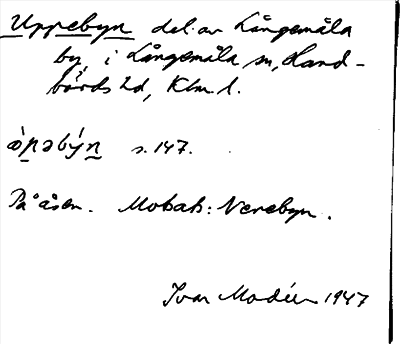 Uppebyn del. av Långemåla
by, i Långemåla sn, Hand-
börds hd, Klm. l.
s. 147.
På åsen. Motsats: Nerebyn.
Ivar Modéer 1947